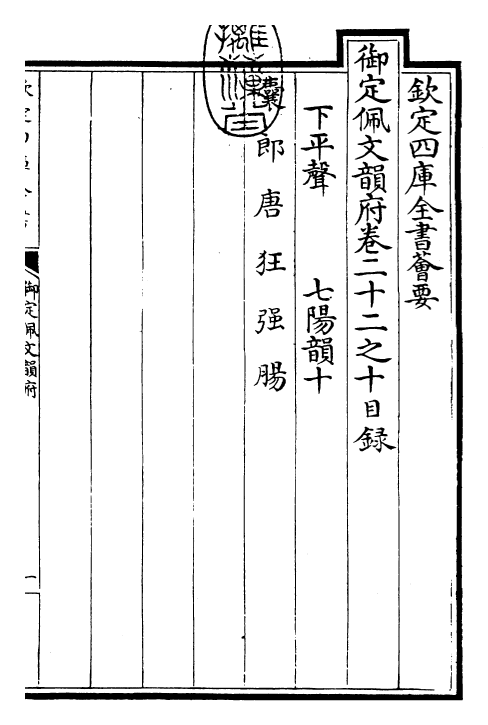 欽定四庫全書薈要
御定佩文韻府卷二十二之十目録
下平聲　七陽韻十
囊郎唐狂强腸
御定佩文韻府
一